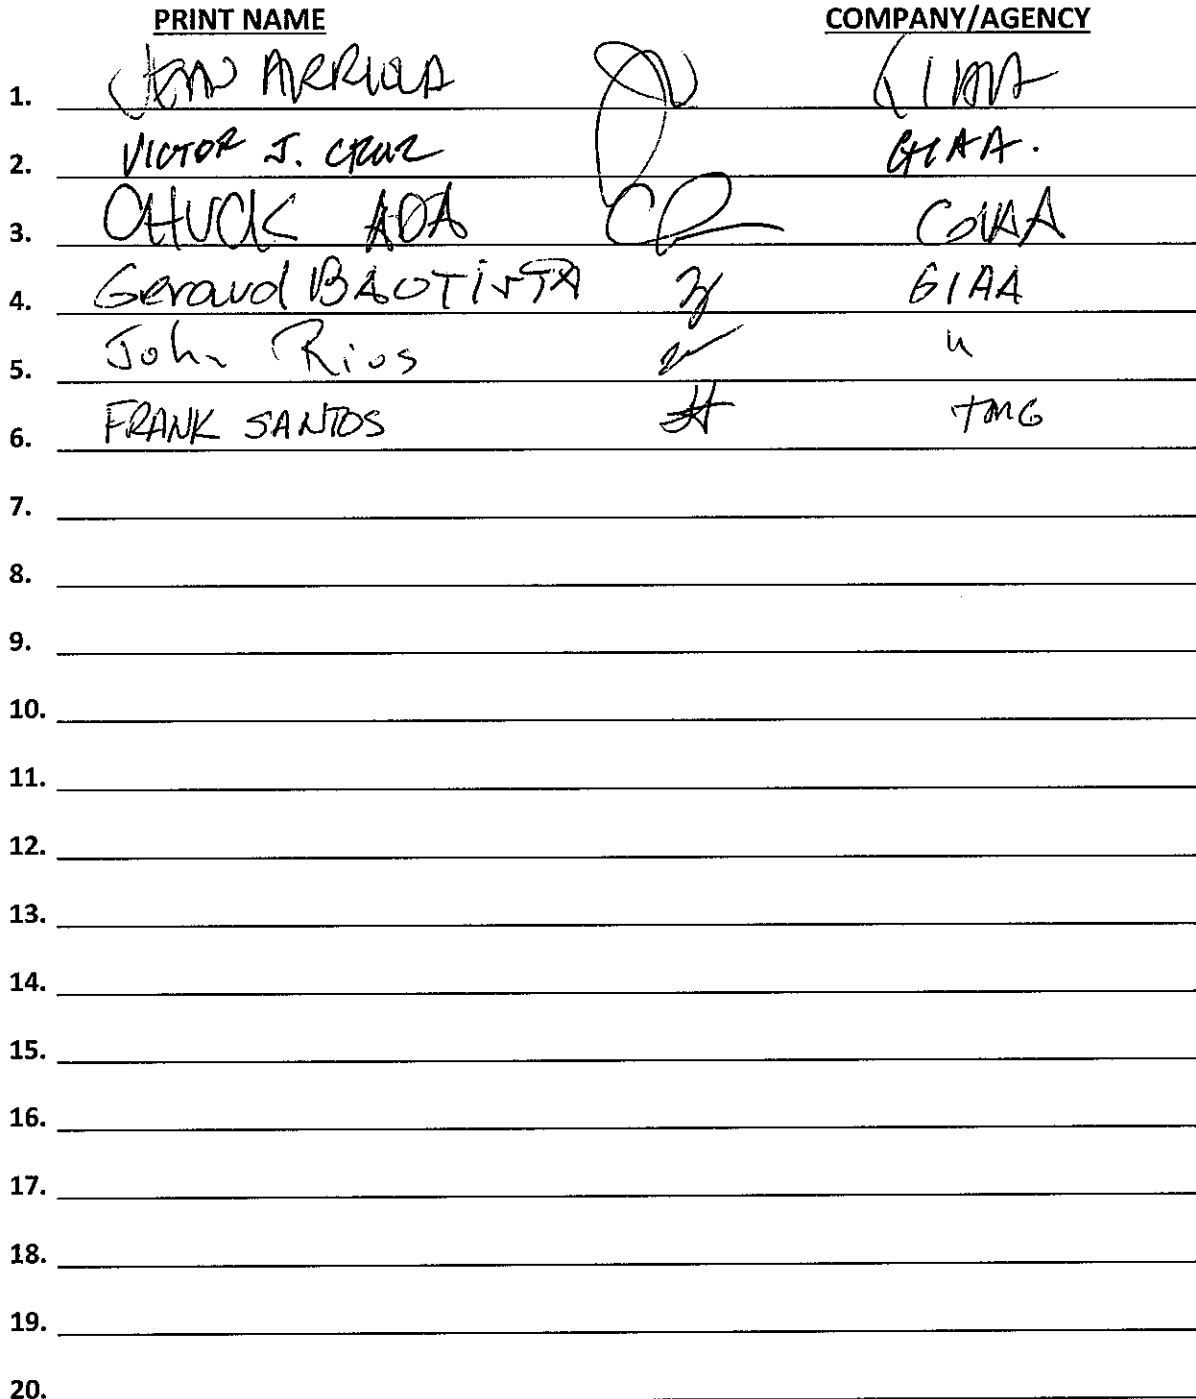 PRINT NAME COMPANY/AGENCY
1. JEAN ARRIOLA GIAA
2. VICTOR J. CRUZ GIAA.
3. CHUCK ADA
4. Geraud BAUTISTA GIAA
5. John Rios "
6. FRANK SANTOS TMG
7.
8.
9.
10.
11.
12.
13.
14.
15.
16.
17.
18.
19.
20.